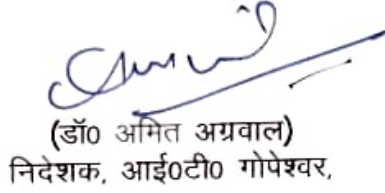 (डॉ0 अमित अग्रवाल)
निदेशक, आई0टी0 गोपेश्वर,